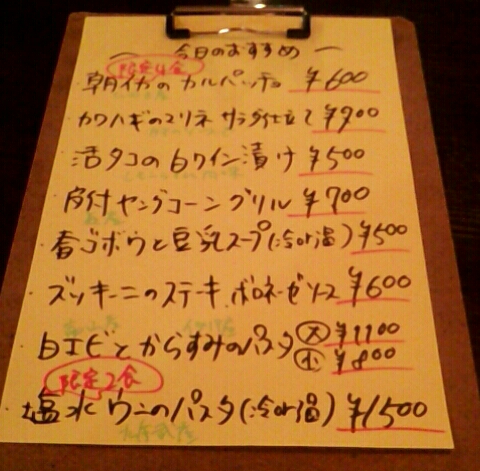 今日のおすすめ
限定4食
朝イカの カルパッチョ ¥600
カワハギのマリネ サラダ仕立て ¥900
活タコの白ワイン漬け ¥500
皮付ヤングコーングリル ¥700
春ゴボウと豆乳スープ(冷or温) ¥500
ズッキーニのステーキ、ボロネーゼソース ¥600
白エビとからすみのパスタ 大 ¥1100
小 ¥800
限定2食
塩水ウニのパスタ(冷or温) ¥1500